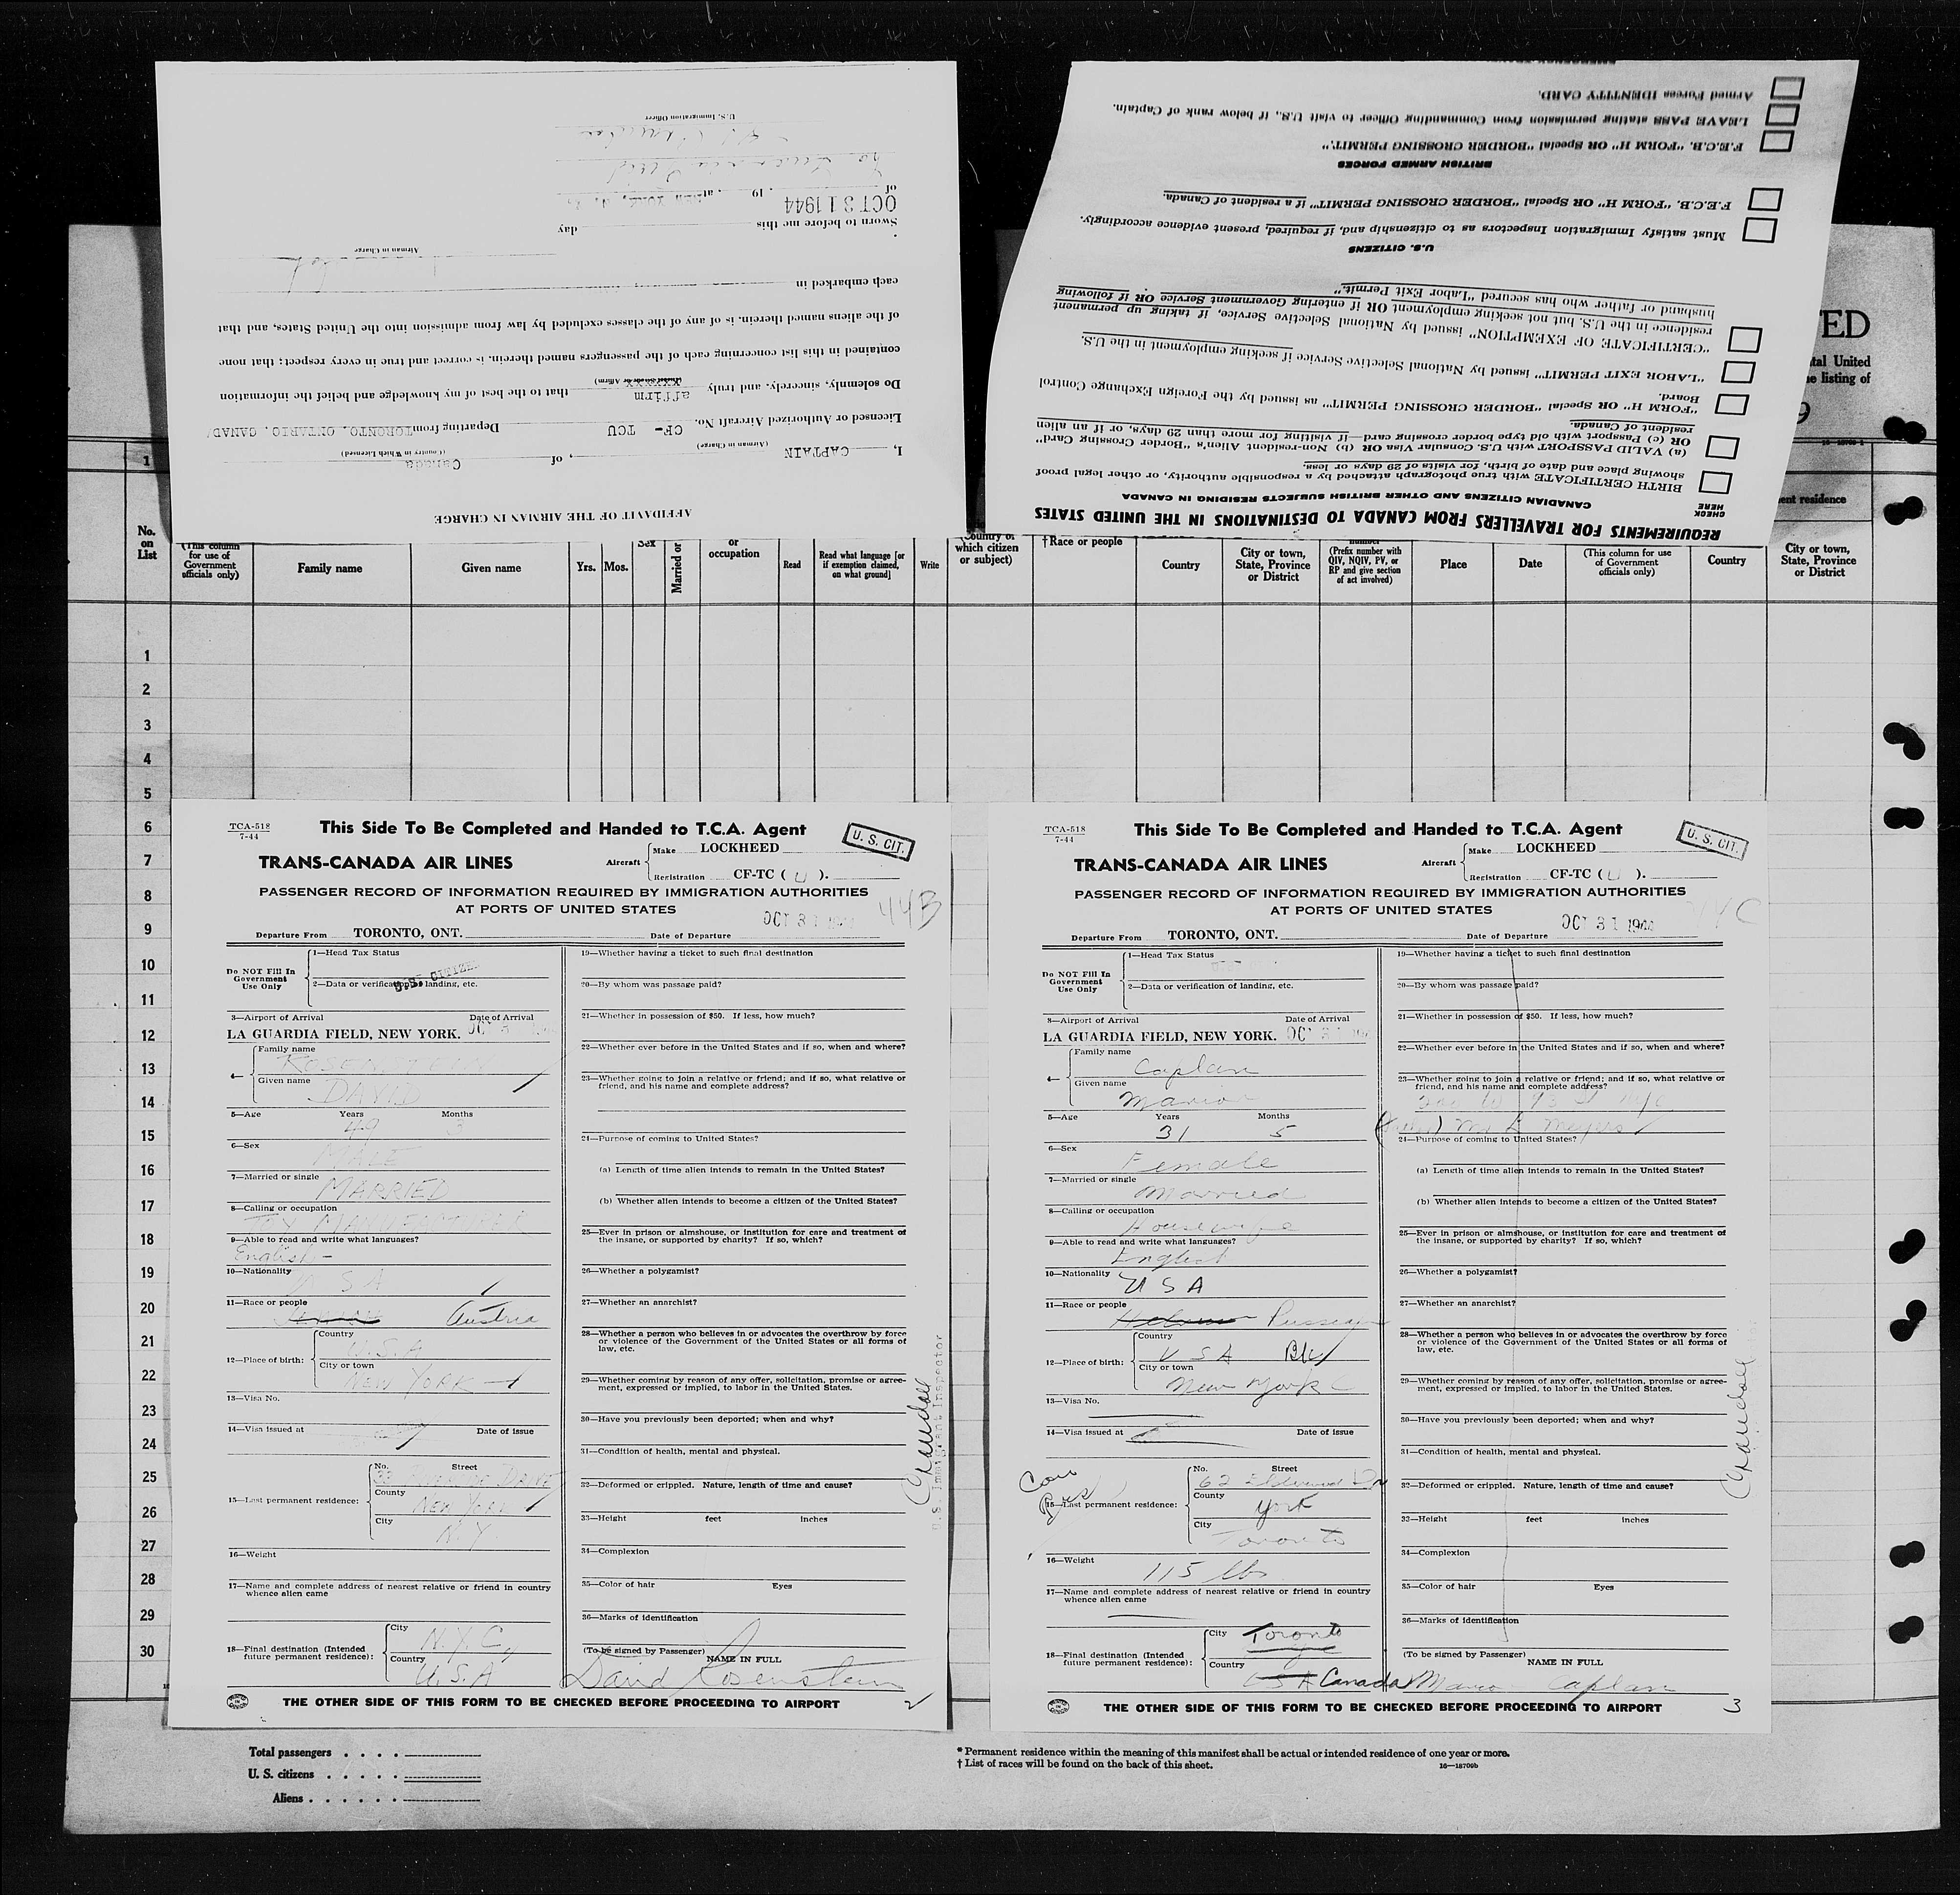 AFFIDAVIT OF THE AIRMAN IN CHARGE
I, CAPTAIN , of Canada
(Airman in Charge) (Country in Which Licensed)
Licensed or Authorized Aircraft No. CF- TCU Departing from TORONTO, ONTARIO, CANADA
Do solemnly, sincerely, and truly affirm that to the best of my knowledge and belief the information
contained in this list concerning each of the passengers named therein, is correct and true in every respect; that none
of the aliens named therein, is of any of the classes excluded by law from admission into the United States, and that
each embarked in
Airman in Charge
Sworn to before me this day
OCT 31 1944 , 19 , at NEW YORK, N. Y.
of
La Guardia Field
U.S. Immigration Officer
REQUIREMENTS FOR TRAVELLERS FROM CANADA TO DESTINATIONS IN THE UNITED STATES
CHECK
HERE
CANADIAN CITIZENS AND OTHER BRITISH SUBJECTS RESIDING IN CANADA
BIRTH CERTIFICATE with true photograph attached by a responsible authority, or other legal proof
showing place and date of birth, for visits of 29 days or less.
(a) VALID PASSPORT with U.S. Consular Visa OR (b) Non-resident Alien's "Border Crossing Card"
OR (c) Passport with old type border crossing card—if visiting for more than 29 days, or if an alien
resident of Canada.
"FORM H" OR Special "BORDER CROSSING PERMIT" as issued by the Foreign Exchange Control
Board.
"LABOR EXIT PERMIT" issued by National Selective Service if seeking employment in the U.S.
"CERTIFICATE OF EXEMPTION" issued by National Selective Service, if taking up permanent
residence in the U.S. but not seeking employment OR if entering Government Service OR if following
husband or father who has secured "Labor Exit Permit."
U.S. CITIZENS
Must satisfy Immigration Inspectors as to citizenship and, if required, present evidence accordingly.
F.E.C.B. "FORM H" OR Special "BORDER CROSSING PERMIT" if a resident of Canada.
BRITISH ARMED FORCES
F.E.C.B. "FORM H" OR Special "BORDER CROSSING PERMIT."
LEAVE PASS stating permission from Commanding Officer to visit U.S., if below rank of Captain.
Armed Forces IDENTITY CARD.
ED
tal United
e listing of
9
1
ent residence
No.
on
List
(This column
for use of
Government
officials only)
Family name
Given name
Yrs.
Mos.
Sex
Married or
or
occupation
Read
Read what language [or
if exemption claimed,
on what ground]
Write
Country of
which citizen
or subject)
†Race or people
Country
City or town,
State, Province
or District
number
(Prefix number with
QIV, NQIV, PV, or
RP and give section
of act involved)
Place
Date
(This column for use
of Government
officials only)
Country
City or town,
State, Province
or District
1
2
3
4
5
6
7
8
9
10
11
12
13
14
15
16
17
18
19
20
21
22
23
24
25
26
27
28
29
30
TCA-518
7-44
This Side To Be Completed and Handed to T.C.A. Agent
U. S. CIT.
TRANS-CANADA AIR LINES
Aircraft
Make LOCKHEED
Registration CF-TC ( U ).
PASSENGER RECORD OF INFORMATION REQUIRED BY IMMIGRATION AUTHORITIES
AT PORTS OF UNITED STATES
OCT 31 1944
44B
Departure From TORONTO, ONT. Date of Departure
Do NOT Fill In
Government
Use Only
1—Head Tax Status
U.S. CITIZEN
2—Data or verification of landing, etc.
3—Airport of Arrival Date of Arrival
LA GUARDIA FIELD, NEW YORK.
4—
Family name
ROSENSTEIN
Given name
DAVID
5—Age Years Months
49 3
6—Sex
MALE
7—Married or single
MARRIED
8—Calling or occupation
TOY MANUFACTURER
9—Able to read and write what languages?
English
10—Nationality
U S A
11—Race or people
Austria
12—Place of birth:
Country
U.S.A
City or town
NEW YORK
13—Visa No.
14—Visa issued at Date of issue
15—Last permanent residence:
No. Street
DRIVE
County
NEW YORK
City
N.Y
16—Weight
17—Name and complete address of nearest relative or friend in country
whence alien came
18—Final destination (Intended
future permanent residence):
City
N.Y.C,
Country
U.S.A
19—Whether having a ticket to such final destination
20—By whom was passage paid?
21—Whether in possession of $50. If less, how much?
22—Whether ever before in the United States and if so, when and where?
23—Whether going to join a relative or friend; and if so, what relative or
friend, and his name and complete address?
24—Purpose of coming to United States?
(a) Length of time alien intends to remain in the United States?
(b) Whether alien intends to become a citizen of the United States?
25—Ever in prison or almshouse, or institution for care and treatment of
the insane, or supported by charity? If so, which?
26—Whether a polygamist?
27—Whether an anarchist?
28—Whether a person who believes in or advocates the overthrow by force
or violence of the Government of the United States or all forms of
law, etc.
29—Whether coming by reason of any offer, solicitation, promise or agree-
ment, expressed or implied, to labor in the United States.
30—Have you previously been deported; when and why?
31—Condition of health, mental and physical.
32—Deformed or crippled. Nature, length of time and cause?
33—Height feet inches
34—Complexion
35—Color of hair Eyes
36—Marks of identification
(To be signed by Passenger) NAME IN FULL
David Rosenstein
U.S. Immigrant Inspector
THE OTHER SIDE OF THIS FORM TO BE CHECKED BEFORE PROCEEDING TO AIRPORT
2
TCA-518
7-44
This Side To Be Completed and Handed to T.C.A. Agent
U. S. CIT.
TRANS-CANADA AIR LINES
Aircraft
Make LOCKHEED
Registration CF-TC ( U ).
PASSENGER RECORD OF INFORMATION REQUIRED BY IMMIGRATION AUTHORITIES
AT PORTS OF UNITED STATES
OCT 31 1944
44C
Departure From TORONTO, ONT. Date of Departure
Do NOT Fill In
Government
Use Only
1—Head Tax Status
2—Data or verification of landing, etc.
3—Airport of Arrival Date of Arrival
LA GUARDIA FIELD, NEW YORK. OCT 31 194
4—
Family name
Caplan
Given name
Marion
5—Age Years Months
31 5
6—Sex
Female
7—Married or single
Married
8—Calling or occupation
Housewife
9—Able to read and write what languages?
English
10—Nationality
U S A
11—Race or people
Hebrew Russian
12—Place of birth:
Country
U S A Bk
City or town
New York C
13—Visa No.
14—Visa issued at Date of issue
15—Last permanent residence:
No. Street
62
County
York
City
Toronto
16—Weight
115 lbs
17—Name and complete address of nearest relative or friend in country
whence alien came
18—Final destination (Intended
future permanent residence):
City
Toronto
Country
USA Canada
19—Whether having a ticket to such final destination
20—By whom was passage paid?
21—Whether in possession of $50. If less, how much?
22—Whether ever before in the United States and if so, when and where?
23—Whether going to join a relative or friend; and if so, what relative or
friend, and his name and complete address?
W 93 St NYC
Meyers
24—Purpose of coming to United States?
(a) Length of time alien intends to remain in the United States?
(b) Whether alien intends to become a citizen of the United States?
25—Ever in prison or almshouse, or institution for care and treatment of
the insane, or supported by charity? If so, which?
26—Whether a polygamist?
27—Whether an anarchist?
28—Whether a person who believes in or advocates the overthrow by force
or violence of the Government of the United States or all forms of
law, etc.
29—Whether coming by reason of any offer, solicitation, promise or agree-
ment, expressed or implied, to labor in the United States.
30—Have you previously been deported; when and why?
31—Condition of health, mental and physical.
32—Deformed or crippled. Nature, length of time and cause?
33—Height feet inches
34—Complexion
35—Color of hair Eyes
36—Marks of identification
(To be signed by Passenger) NAME IN FULL
Marion Caplan
THE OTHER SIDE OF THIS FORM TO BE CHECKED BEFORE PROCEEDING TO AIRPORT
3
Total passengers . . . .
U. S. citizens . . . . .
Aliens . . . . . .
* Permanent residence within the meaning of this manifest shall be actual or intended residence of one year or more.
† List of races will be found on the back of this sheet.
16—18709b